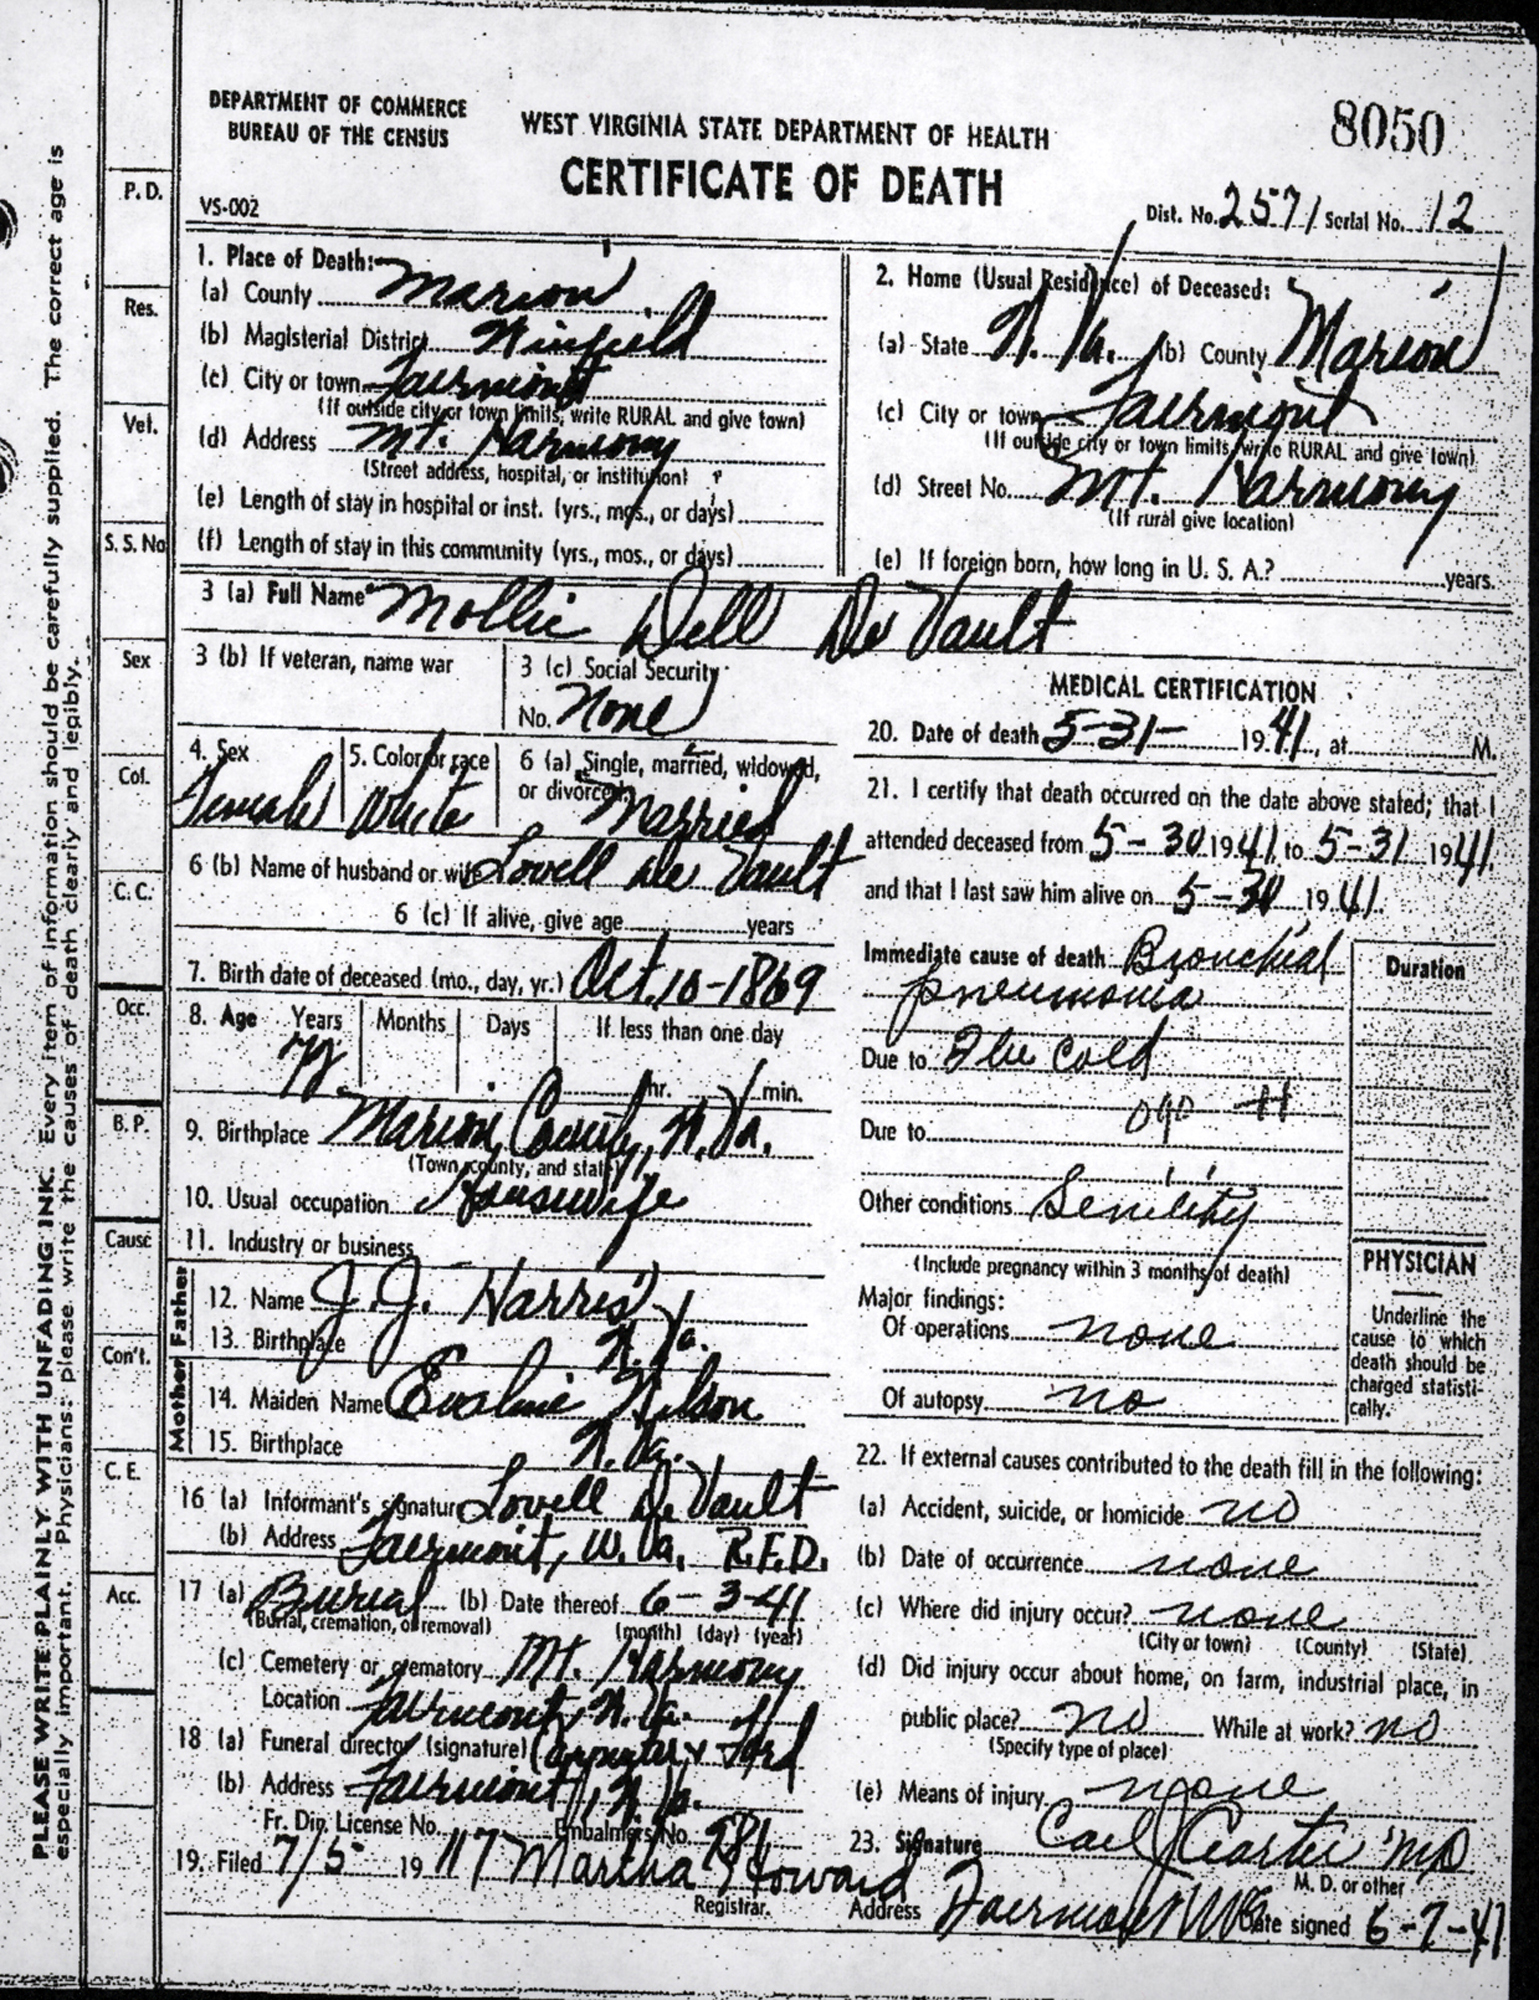 DEPARTMENT OF COMMERCE
BUREAU OF THE CENSUS
WEST VIRGINIA STATE DEPARTMENT OF HEALTH
8050
CERTIFICATE OF DEATH
VS-002
Dist. No. 2571 Serial No. 12
1. Place of Death:
(a) County Marion
(b) Magisterial District Winfield
(c) City or town Fairmont
(If outside city or town limits, write RURAL and give town)
(d) Address Mt. Harmony
(Street address, hospital, or institution)
(e) Length of stay in hospital or inst. (yrs., mos., or days)
(f) Length of stay in this community (yrs., mos., or days)
2. Home (Usual Residence) of Deceased:
(a) State W. Va. (b) County Marion
(c) City or town Fairmont
(If outside city or town limits, write RURAL and give town)
(d) Street No. Mt. Harmony
(If rural give location)
(e) If foreign born, how long in U. S. A.? years.
3 (a) Full Name Mollie Dell De Vault
3 (b) If veteran, name war
3 (c) Social Security
No. None
4. Sex
Female
5. Color or race
White
6 (a) Single, married, widowed,
or divorced. Married
6 (b) Name of husband or wife Lovell De Vault
6 (c) If alive, give age years
7. Birth date of deceased (mo., day, yr.) Oct. 10-1869
8. Age Years Months Days If less than one day
hr. min.
9. Birthplace Marion County, W. Va.
(Town, county, and state)
10. Usual occupation Housewife
11. Industry or business
Father
12. Name J. J. Harris
13. Birthplace W. Va.
Mother
14. Maiden Name Evaline Wilson
15. Birthplace W. Va.
16 (a) Informant's signature Lovell De Vault
(b) Address Fairmont, W. Va. R.F.D.
17 (a) Burial (b) Date thereof 6-3-41
(Burial, cremation, or removal) (month) (day) (year)
(c) Cemetery or crematory Mt. Harmony
Location Fairmont, W. Va.
18 (a) Funeral director (signature) Carpenter & Ford
(b) Address Fairmont, W. Va.
Fr. Dir. License No. 117 Embalmers No. 981
19. Filed 7/5 19 Martha Howard
Registrar.
MEDICAL CERTIFICATION
20. Date of death 5-31- 19 41, at M.
21. I certify that death occurred on the date above stated; that I
attended deceased from 5-30 19 41, to 5-31 19 41.
and that I last saw him alive on 5-30 19 41.
Immediate cause of death Bronchial
pneumonia
Due to Flu cold
Due to
Other conditions Senility
(Include pregnancy within 3 months of death)
Major findings:
Of operations none
Of autopsy no
Duration
PHYSICIAN
Underline the
cause to which
death should be
charged statisti-
cally.
22. If external causes contributed to the death fill in the following:
(a) Accident, suicide, or homicide no
(b) Date of occurrence none
(c) Where did injury occur? none
(City or town) (County) (State)
(d) Did injury occur about home, on farm, industrial place, in
public place? no While at work? no
(Specify type of place)
(e) Means of injury none
23. Signature Carl J Carter MD
M. D. or other
Address Fairmont W Va Date signed 6-7-41
P. D.
Res.
Vet.
S. S. No
Sex
Col.
C. C.
Occ.
B. P.
Cause
Con't.
C. E.
Acc.
PLEASE WRITE PLAINLY WITH UNFADING INK. Every item of information should be carefully supplied. The correct age is
especially important. Physicians: please write the causes of death clearly and legibly.